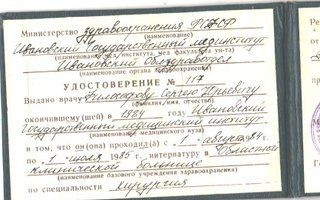 Министерство здравоохранения РСФСР
(наименование)
Ивановский Государственный мединститут
(наименование вуза, института, мед. факультета ун-та)
Ивановский Облздравотдел
(наименование органа здравоохранения)
УДОСТОВЕРЕНИЕ № 117
Выдано врачу Философову Сергею Юрьевичу
(фамилия, имя, отчество)
окончившему(шей) в 1984 году Ивановский
Государственный медицинский институт
(наименование медицинского вуза)
в том, что он (она) проходил(а) с 1 августа 1984 г.
по 1 июля 1985 г. интернатуру в Областной
клинической больнице
(наименование базового учреждения здравоохранения)
по специальности хирургия